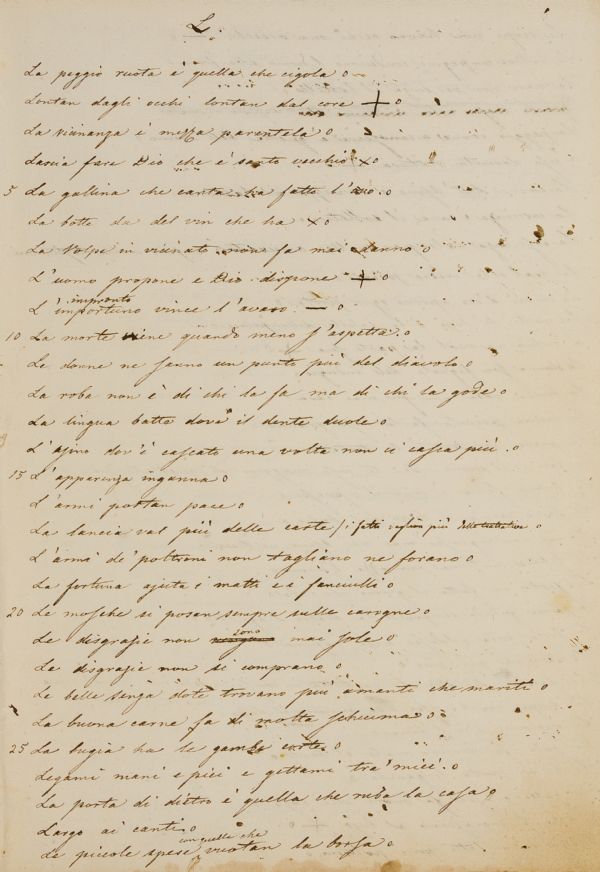 L.
La peggio ruota è quella che cigola o
Lontan dagli occhi lontan dal core + o
La vicinanza è mezza parentela o
Lascia fare Dio che è santo vecchio x o
5 La gallina che canta ha fatto l'uovo. o
La botte da del vin che ha x o
La Volpe in vicinato non fa mai danno o
L'uomo propone e Dio dispone + o
impronto
L'importuno vince l'avaro. — o
10 La morte viene quando meno s'aspetta. o
Le donne ne sanno un punto più del diavolo o
La roba non è di chi la fa ma di chi la gode o
La lingua batte dov'è il dente duole o
L'asino dov'è cascato una volta non ci casca più. o
15 L'apparenza inganna o
L'armi portan pace o
La lancia val più delle carte / i fatti vaglion più o
L'armi de' poltroni non tagliano ne forano o
La fortuna ajuta i matti e i fanciulli o
20 Le mosche si posan sempre sulle carogne o
sono
Le disgrazie non mai sole o
Le disgrazie non si comprano. o
Le belle senza dote trovano più amanti che mariti o
La buona carne fa di molta schiuma o
25 La bugia ha le gambe corte. o
Legami mani e piei e gettami tra' miei. o
La porta di dietro è quella che ruba la casa o
Largo ai canti o
con quelle che
Le piccole spese vuotan la borsa o